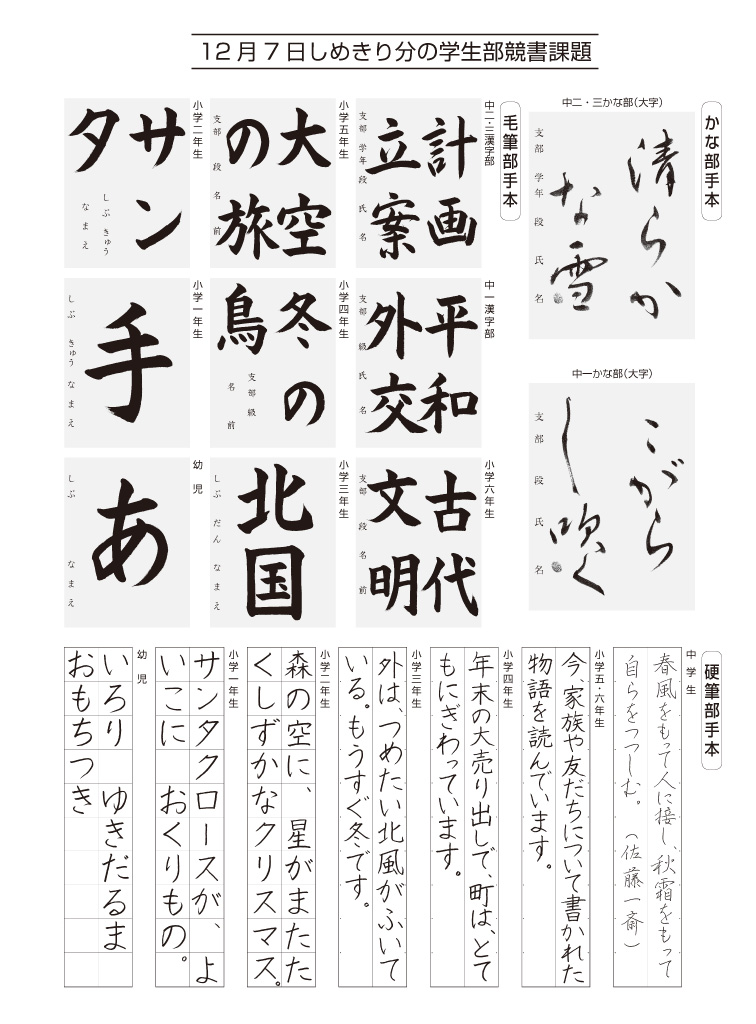 12月7日しめきり分の学生部競書課題
かな部手本
中二・三かな部(大字)
清らか
な雪
支部 学年 段 氏 名
中一かな部(大字)
こがら
し吹く
支部 段 氏 名
毛筆部手本
中二・三漢字部
計画
立案
支部 学年 段 氏 名
中一漢字部
平和
外交
支部 級 氏 名
小学六年生
古代
文明
支部 段 名 前
小学五年生
大空
の旅
支部 段 名 前
小学四年生
冬の
鳥
支部 級
名 前
小学三年生
北国
しぶ だん なまえ
小学二年生
サン
タ
しぶ きゅう
なまえ
小学一年生
手
しぶ きゅう なまえ
幼児
あ
しぶ なまえ
硬筆部手本
中学生
春風をもって人に接し、秋霜をもって
自らをつつしむ。 (佐藤一斎)
小学五・六年生
今、家族や友だちについて書かれた
物語を読んでいます。
小学四年生
年末の大売り出しで、町は、とて
もにぎわっています。
小学三年生
外は、つめたい北風がふいて
いる。もうすぐ冬です。
小学二年生
森の空に、星がまたた
くしずかなクリスマス。
小学一年生
サンタクロースが、よ
いこに おくりもの。
幼児
いろり ゆきだるま
おもちつき